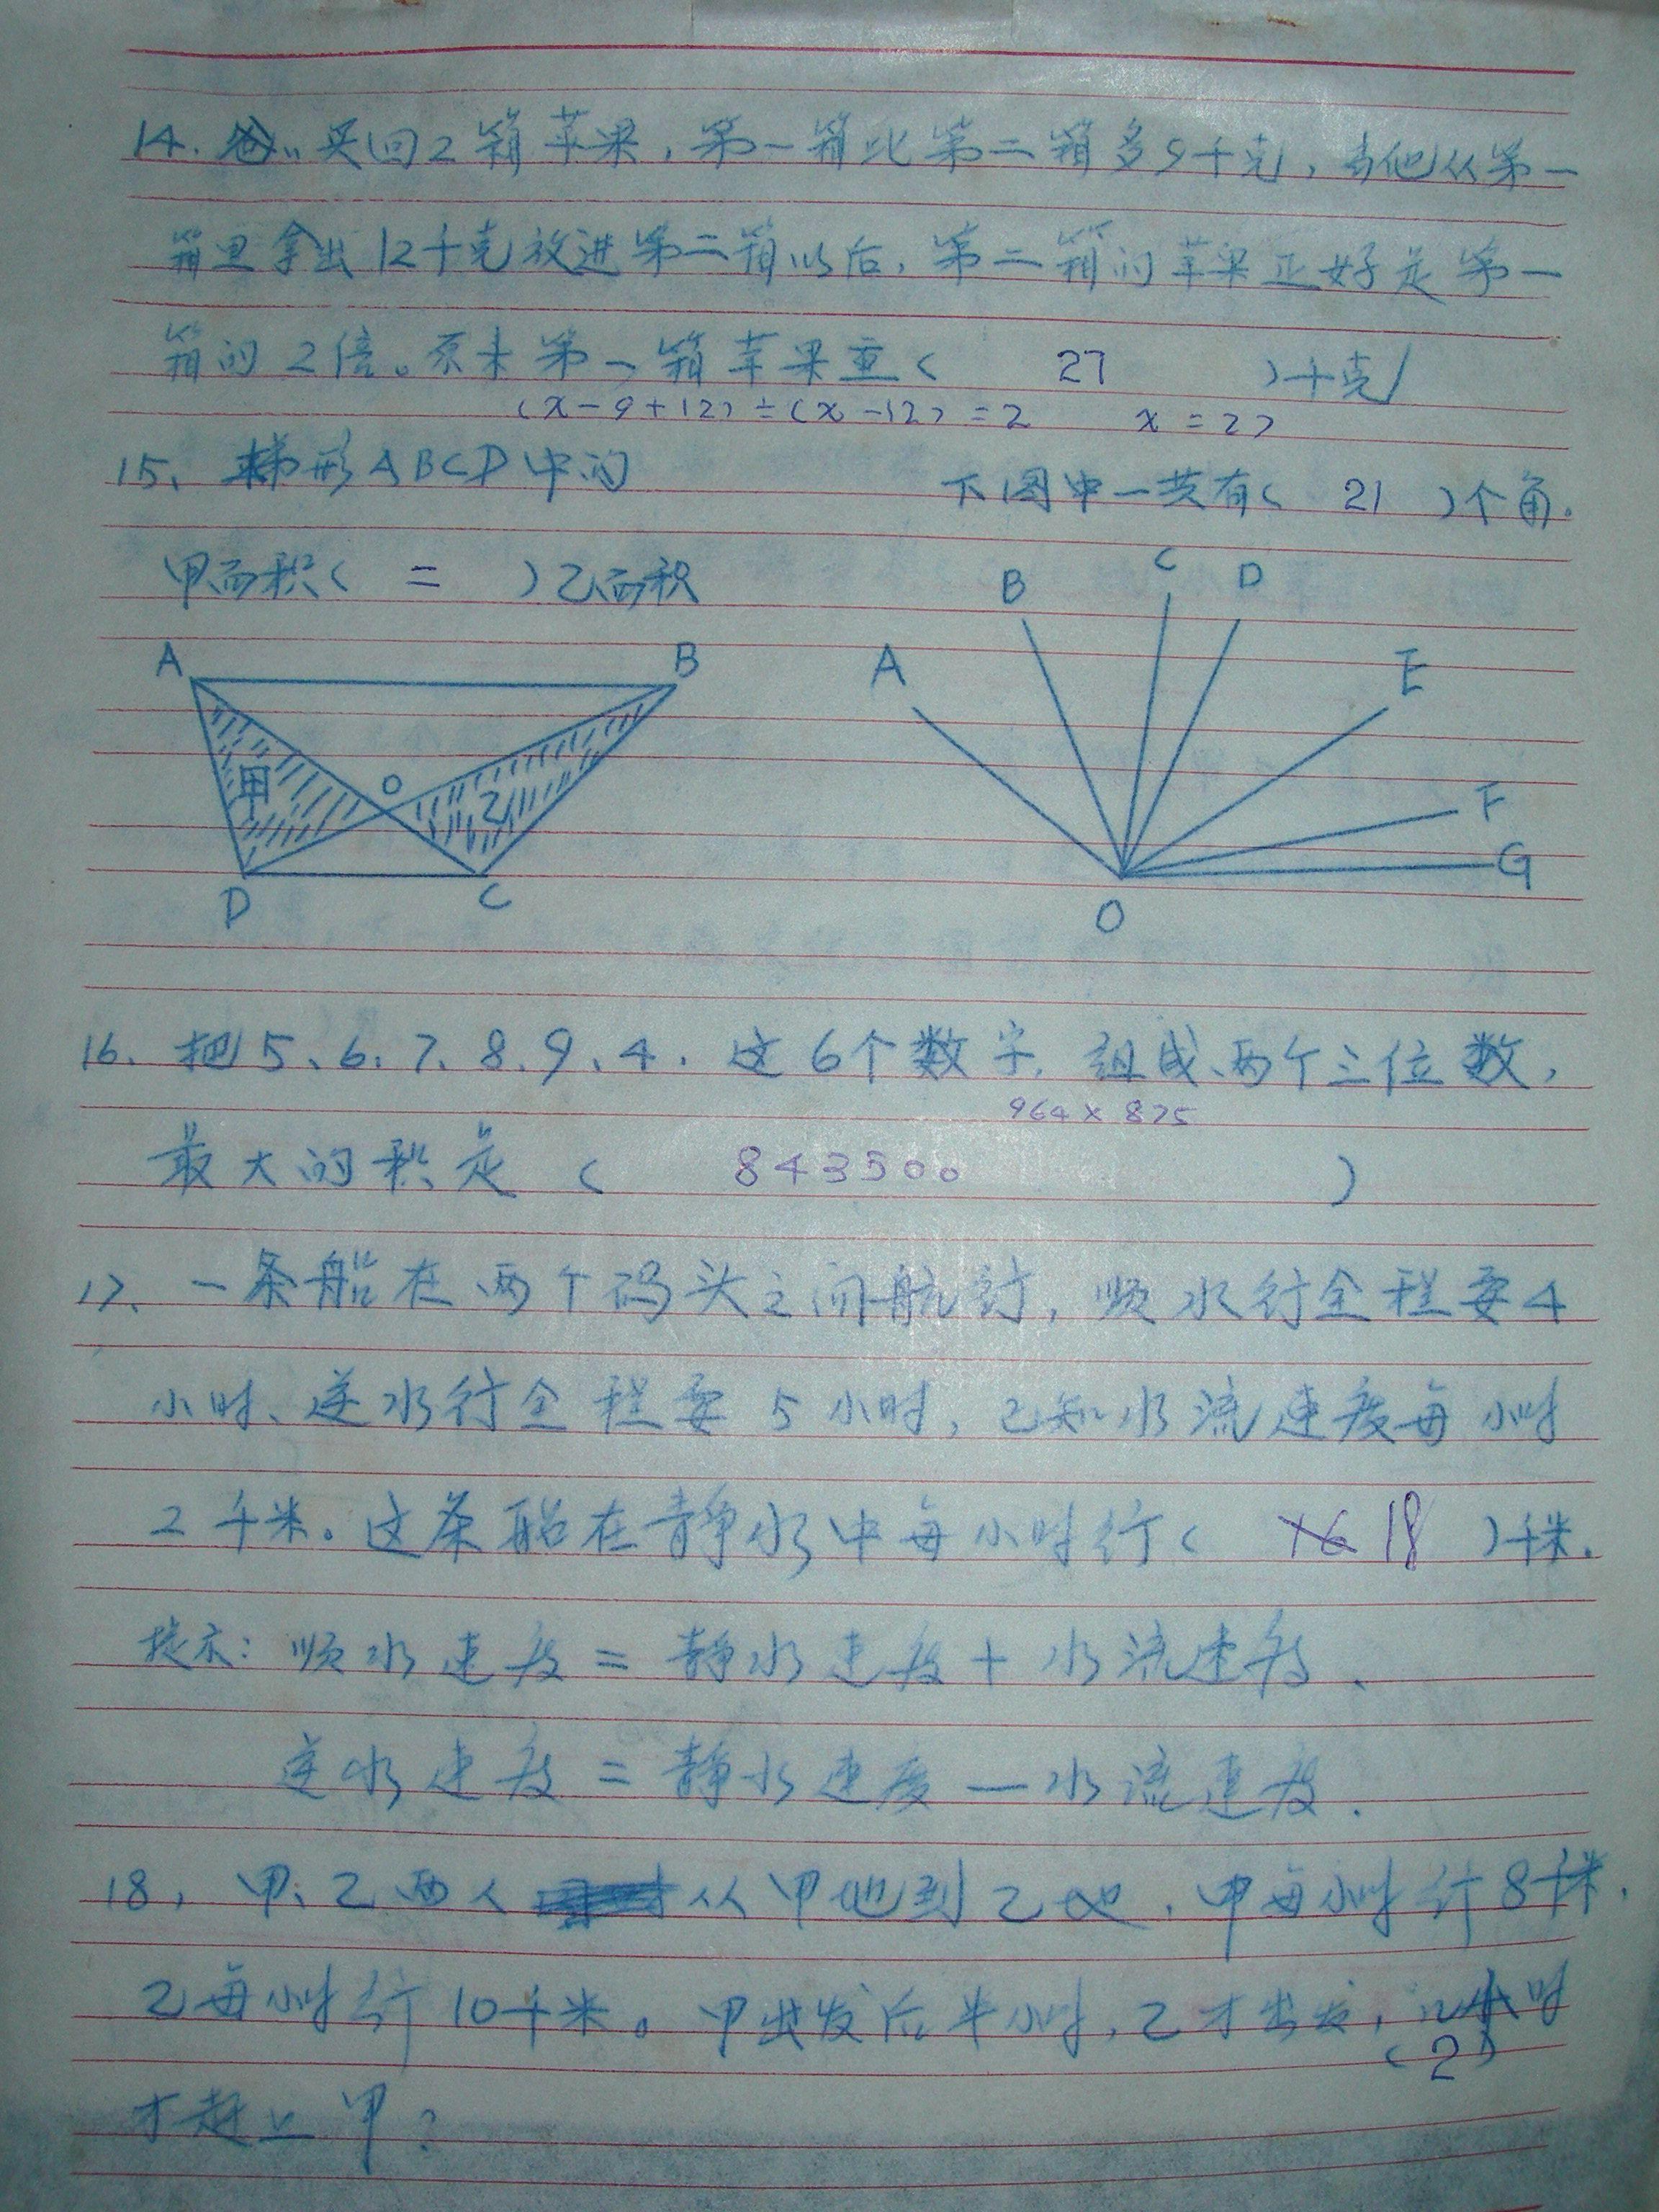 14. 爸〃买回2箱苹果，第一箱比第二箱多9千克，当他从第一
箱里拿出12千克放进第二箱以后，第二箱的苹果正好是第一
箱的2倍。原来第一箱苹果重( 27 )千克
(x-9+12)÷(x-12)=2 x=27
15、梯形ABCD中的
甲面积( = )乙面积
A
B
甲
O
乙
D
C
下图中一共有( 21 )个角.
A
B
C
D
E
F
G
O
16. 把5、6、7、8、9、4.这6个数字,组成两个三位数,
964×875
最大的积是( 843500 )
17、一条船在两个码头之间航行,顺水行全程要4
小时、逆水行全程要5小时,已知水流速度每小时
2千米。这条船在静水中每小时行( 16 18 )千米.
提示:顺水速度=静水速度+水流速度.
逆水速度=静水速度—水流速度.
18,甲、乙两人从甲地到乙地.甲每小时行8千米.
乙每小时行10千米。甲出发后半小时,乙才出发,几小时
(2)
才赶上甲?